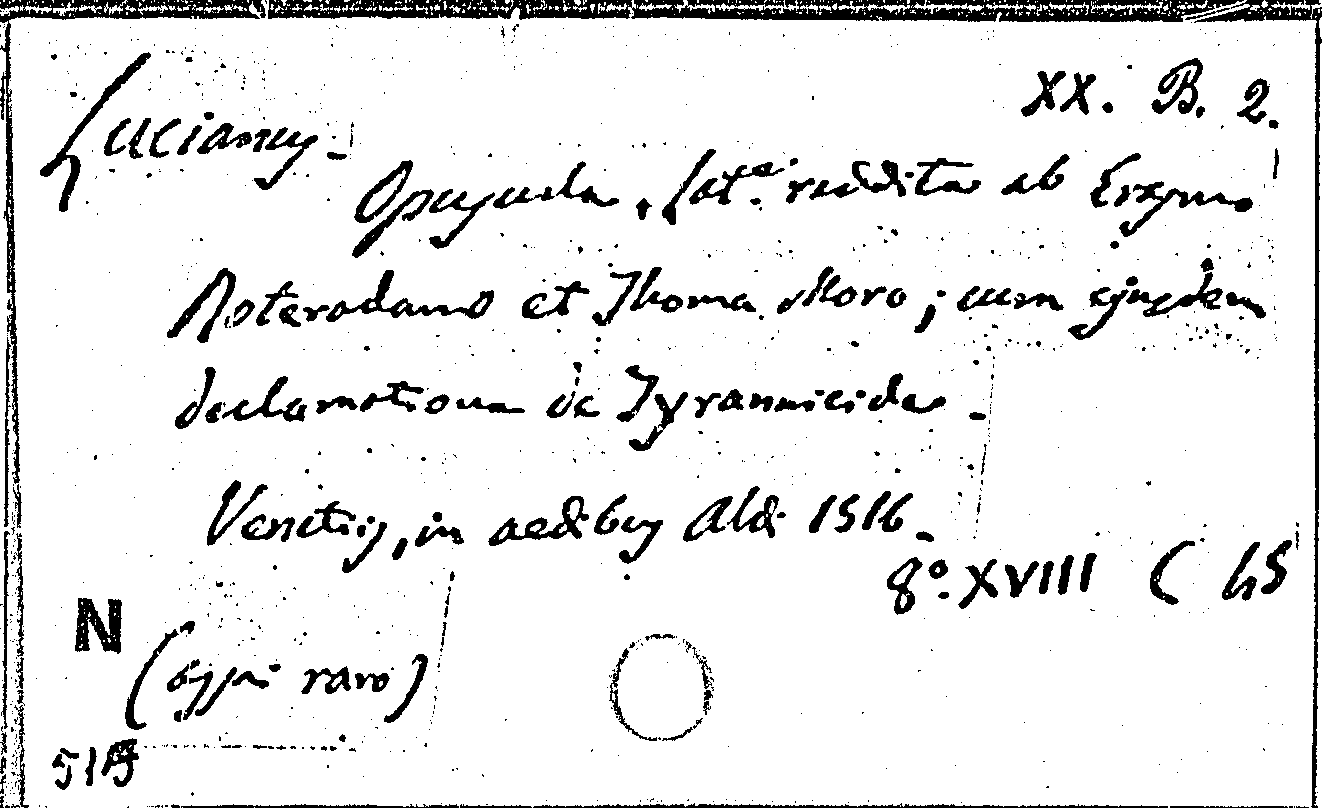 XX. B. 2.
Lucianus -
Opuscula, lat.e reddita ab Erasmo
Roterodamo et Thoma Moro; cum ejusdem
declamatione de Tyrannicida -
Venetiis, in aedibus Aldi 1516 -
8°. XVIII C 45
N
(assai raro)